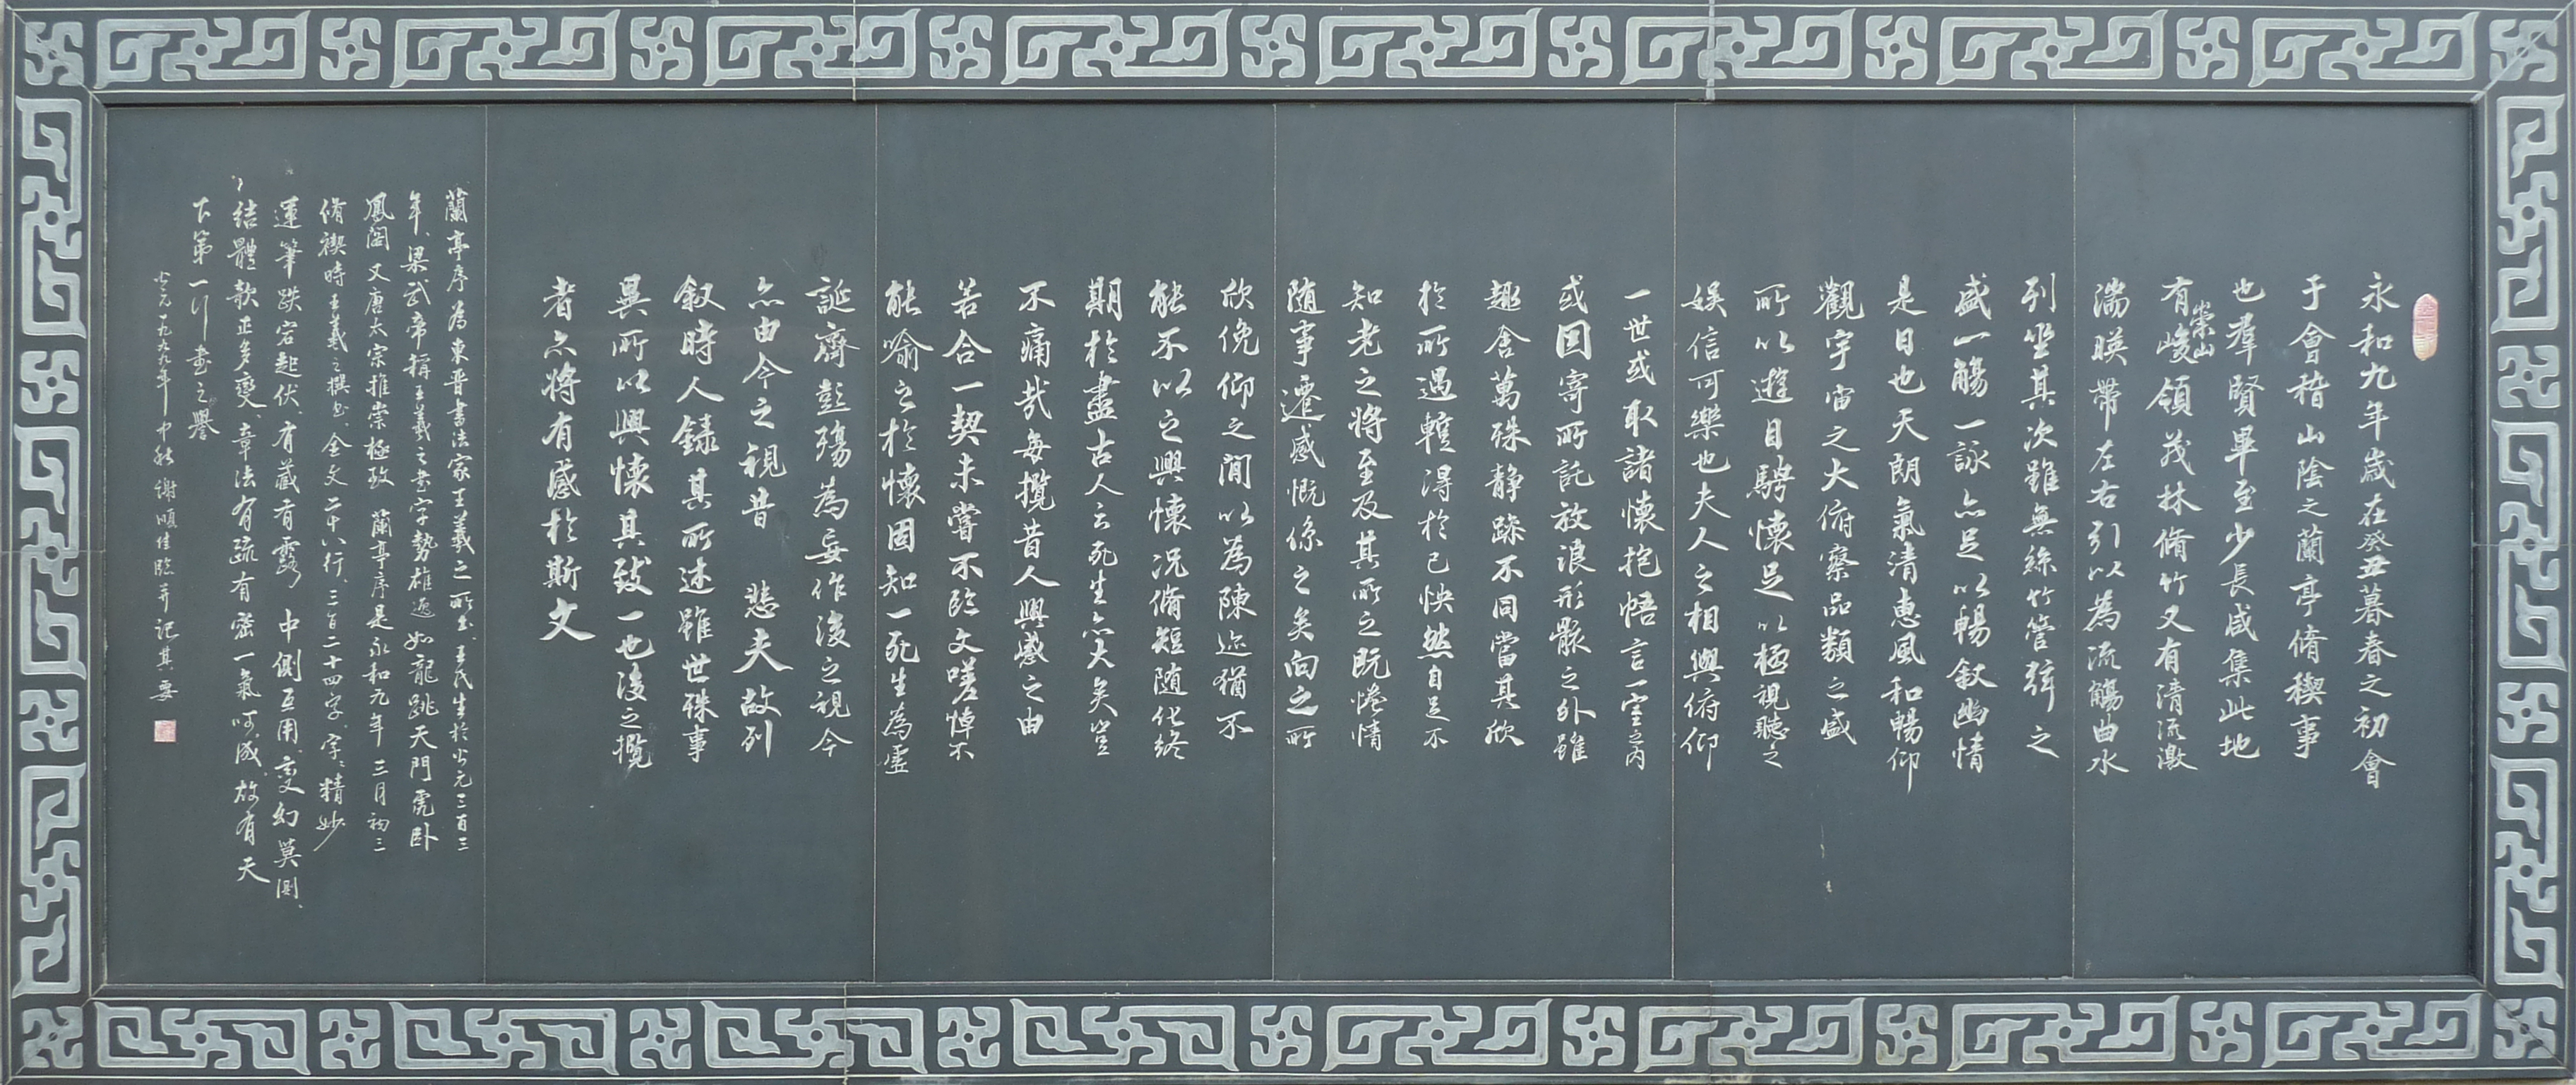 永和九年歲在癸丑暮春之初會
于會稽山陰之蘭亭脩稧事
也羣賢畢至少長咸集此地
有崇山峻領茂林脩竹又有清流激
湍暎帶左右引以為流觴曲水
列坐其次雖無絲竹管弦之
盛一觴一詠亦足以暢叙幽情
是日也天朗氣清惠風和暢仰
觀宇宙之大俯察品類之盛
所以遊目騁懷足以極視聽之
娛信可樂也夫人之相與俯仰
一世或取諸懷抱悟言一室之內
或因寄所託放浪形骸之外雖
趣舍萬殊靜躁不同當其欣
於所遇蹔得於己怏然自足不
知老之將至及其所之既惓情
隨事遷感慨係之矣向之所
欣俛仰之間以為陳迹猶不
能不以之興懷況脩短隨化終
期於盡古人云死生亦大矣豈
不痛哉每攬昔人興感之由
若合一契未嘗不臨文嗟悼不
能喻之於懷固知一死生為虛
誕齊彭殤為妄作後之視今
亦由今之視昔 悲夫故列
叙時人錄其所述雖世殊事
異所以興懷其致一也後之攬
者亦將有感於斯文
蘭亭序為東晉書法家王羲之所書、王氏生於公元三百三
年、梁武帝稱王羲之書字勢雄逸如龍跳天門虎卧
鳳閣又唐太宗推崇極致 蘭亭序是永和九年三月初三
脩禊時王羲之撰書、全文二十八行、三百二十四字、字字精妙
運筆跌宕起伏、有藏有露 中側互用、變幻莫測、
結體欹正多變、章法有疏有密一氣呵成、故有天
下第一行書之譽
公元一九九九年中秋謝順佳臨并記其要